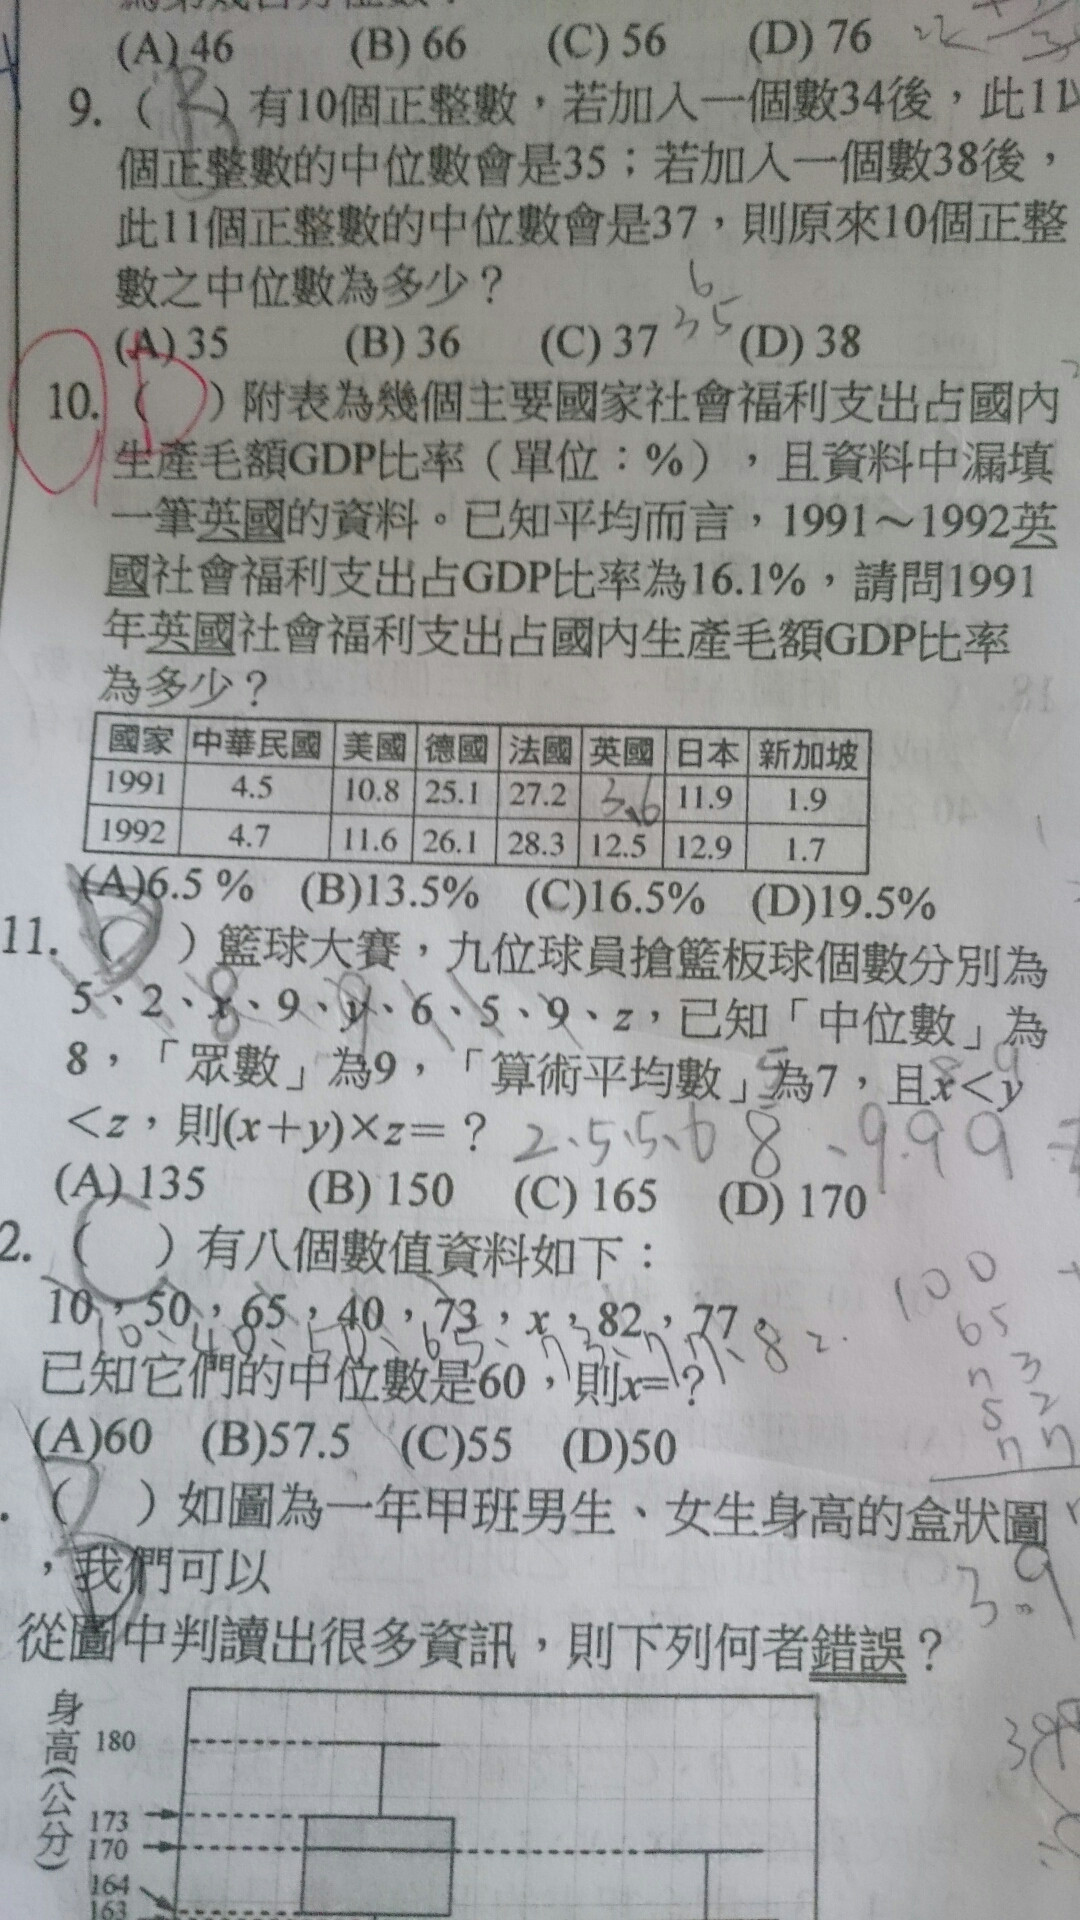 (A) 46 (B) 66 (C) 56 (D) 76
9. ( B ) 有10個正整數，若加入一個數34後，此11
個正整數的中位數會是35；若加入一個數38後，
此11個正整數的中位數會是37，則原來10個正整
數之中位數為多少？
6
35
(A) 35 (B) 36 (C) 37 (D) 38
10. ( D ) 附表為幾個主要國家社會福利支出占國內
生產毛額GDP比率（單位：%），且資料中漏填
一筆英國的資料。已知平均而言，1991～1992英
國社會福利支出占GDP比率為16.1%，請問1991
年英國社會福利支出占國內生產毛額GDP比率
為多少？
國家 中華民國 美國 德國 法國 英國 日本 新加坡
1991 4.5 10.8 25.1 27.2 3.6 11.9 1.9
1992 4.7 11.6 26.1 28.3 12.5 12.9 1.7
(A)6.5 % (B)13.5% (C)16.5% (D)19.5%
11. ( ) 籃球大賽，九位球員搶籃板球個數分別為
5、2、x、9、y、6、5、9、z，已知「中位數」為
8 9
8，「眾數」為9，「算術平均數」為7，且x<y
<z，則(x+y)×z=？
2、5、5、6 8、9.9 9
(A) 135 (B) 150 (C) 165 (D) 170
2. ( C ) 有八個數值資料如下：
10，50，65，40，73，x，82，77，
10、40、50、65、73、77、82
已知它們的中位數是60，則x=？
(A)60 (B)57.5 (C)55 (D)50
100
65
73
52
77
. ( B ) 如圖為一年甲班男生、女生身高的盒狀圖
，我們可以
3.9
從圖中判讀出很多資訊，則下列何者錯誤？
身高(公分)
180
173
170
164
163